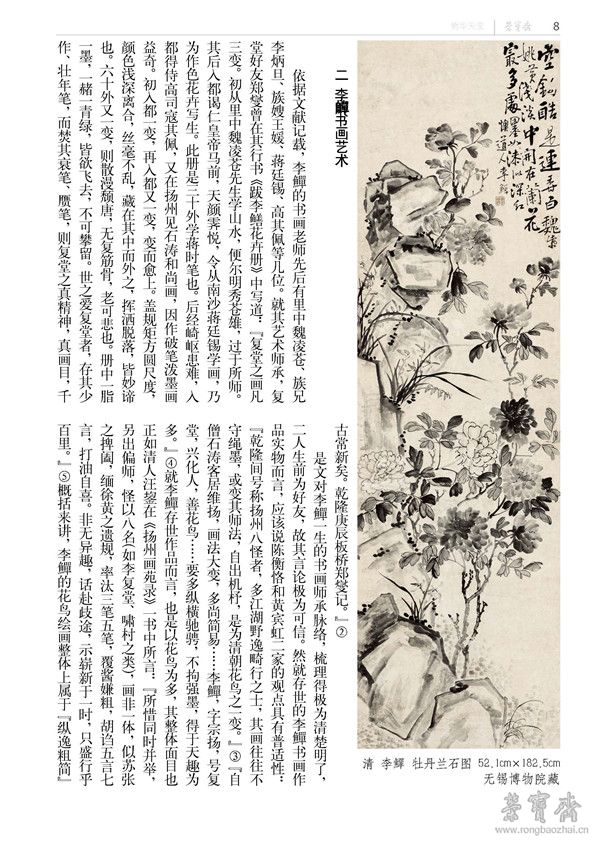 物华天宝 荣宝斋 8
二 李鱓书画艺术
依据文献记载，李鱓的书画老师先后有里中魏凌苍、族兄
李炳旦、族嫂王媛、蒋廷锡、高其佩等几位。就其艺术师承，复
堂好友郑燮曾在其行书《跋李鱓花卉册》中写道：『复堂之画凡
三变。初从里中魏凌苍先生学山水，便尔明秀苍雄，过于所师。
其后入都谒仁皇帝马前，天颜霁悦，令从南沙蒋廷锡学画，乃
为作色花卉写生。此册是三十外学蒋时笔也。后经崎岖患难，入
都得侍高司寇其佩，又在扬州见石涛和尚画，因作破笔泼墨画
益奇。初入都一变，再入都又一变，变而愈上。盖规矩方圆尺度，
颜色浅深离合，丝毫不乱，藏在其中而外之，挥洒脱落，皆妙谛
也。六十外又一变，则散漫颓唐，无复筋骨，老可悲也。册中一脂
一墨，一赭一青绿，皆欲飞去，不可攀留。世之爱复堂者，存其少
作、壮年笔，而焚其衰笔、赝笔，则复堂之真精神，真画目，千
古常新矣。乾隆庚辰板桥郑燮记。』②
是文对李鱓一生的书画师承脉络，梳理得极为清楚明了，
二人生前为好友，故其言论极为可信。然就存世的李鱓书画作
品实物而言，应该说陈衡恪和黄宾虹二家的观点具有普适性：
『乾隆间号称扬州八怪者，多江湖野逸畸行之士，其画往往不
守绳墨，或变其师法，自出机杼，是为清朝花鸟之一变。』③『自
僧石涛客居维扬，画法大变，多尚简易……李鱓，字宗扬，号复
堂，兴化人，善花鸟……要多纵横驰骋，不拘强墨，得于天趣为
多。』④就李鱓存世作品而言，也是以花鸟为多，其整体面目也
正如清人汪鋆在《扬州画苑录》一书中所言：『所惜同时并举，
另出偏师，怪以八名（如李复堂、啸村之类），画非一体，似苏张
之捭阖，缅徐黄之遗规，率汰三笔五笔，覆酱嫌粗，胡诌五言七
言，打油自喜。非无异趣，话赴歧途，示崭新于一时，只盛行乎
百里。』⑤概括来讲，李鱓的花鸟绘画整体上属于『纵逸粗简』
清 李鱓 牡丹兰石图 52.1cm×182.5cm
无锡博物院藏
荣宝斋
www.rongbaozhai.cn